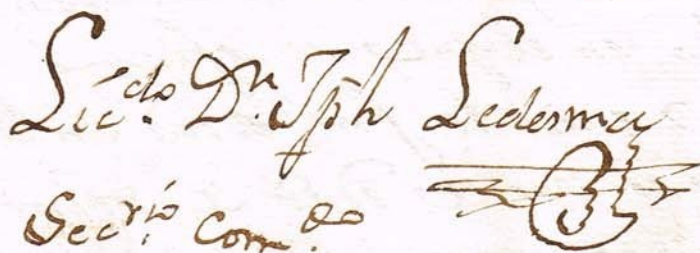 Lic.do Dn. Jph Ledesma
Secrio. Comdo.